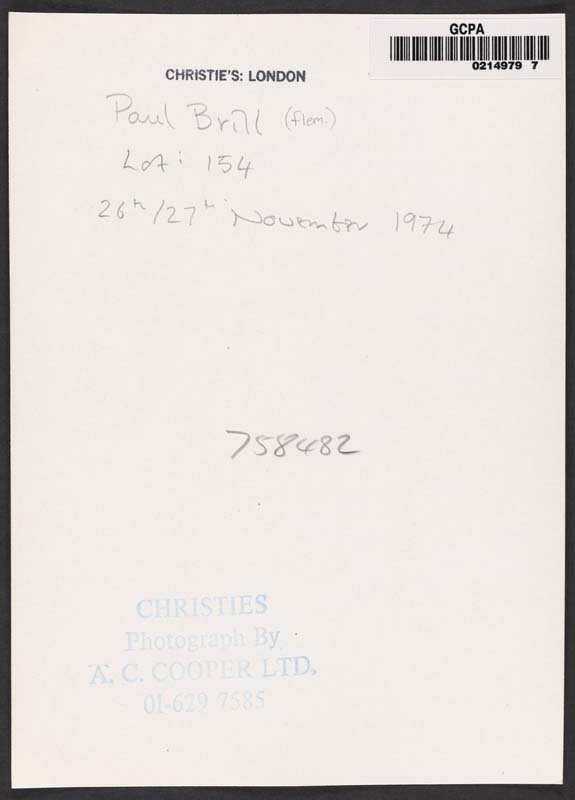 GCPA
0214979 7
CHRISTIE'S: LONDON
Paul Brill (flem.)
Lot: 154
26th/27th November 1974
758482
CHRISTIES
Photograph By
A. C. COOPER LTD,
01-629 7585